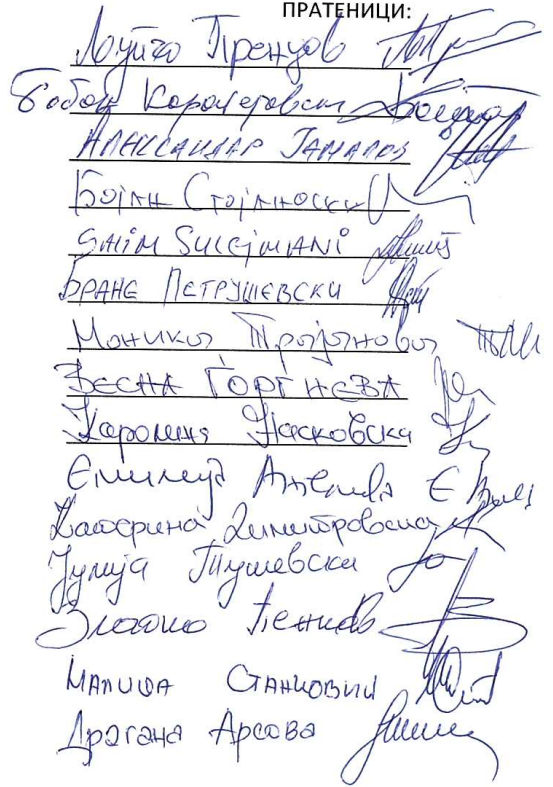 ПРАТЕНИЦИ:
Лупчо Пренџов
Бобан Карапетровски
АЛЕКСАНДАР
Бојан Стојаноски
SAIM SULEJMANI
БРАНЕ ПЕТРУШЕВСКИ
Моника Трајанова
ВЕСНА ЃОРГИЕВА
Каролина Насковска
Емилија Ангелова
Катерина Димитровска
Јулија Тушевска
Златко Пенков
МАЛИША СТАНКОВИЌ
Драгана Арсова